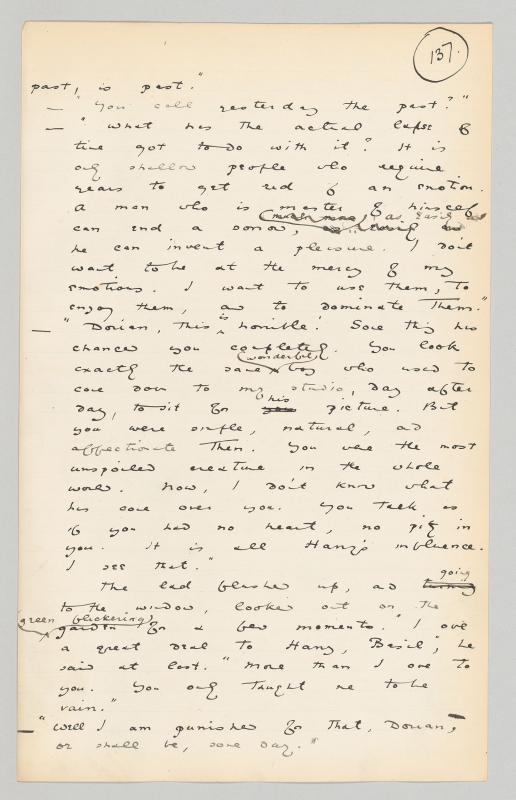 137.
past, is past."
— "You call yesterday the past?"
— "What has the actual lapse of
time got to do with it? It is
only shallow people who require
years to get rid of an emotion.
A man who is master of himself
can end a sorrow, as easily as
he can invent a pleasure. I don't
want to be at the mercy of my
emotions. I want to use them, to
enjoy them, and to dominate them."
— "Dorian, this is horrible! Some thing has
changed you completely. You look
exactly the same wonderful boy who used to
come down to my studio, day after
day, to sit for his picture. But
you were simple, natural, and
affectionate then. You were the most
unspoiled creature in the whole
world. Now, I don't know what
has come over you. You talk as
if you had no heart, no pity in
you. It is all Harry's influence.
I see that."
The lad flushed up, and going
to the window, looked out on the
green flickering garden for a few moments. "I owe
a great deal to Harry, Basil", he
said at last. "More than I owe to
you. You only taught me to be
vain."
— "Well I am punished for that, Dorian,
or shall be, some day."